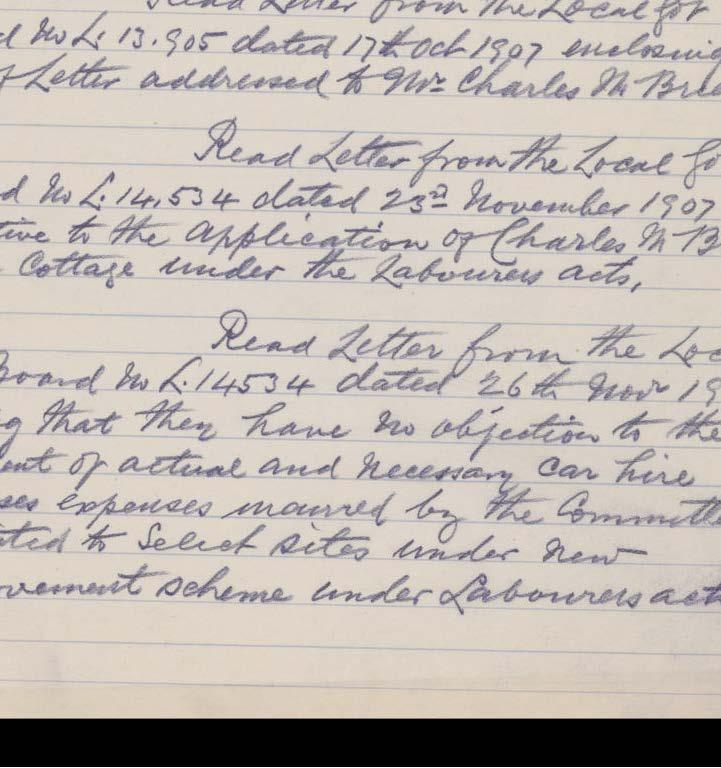 Read Letter from the Local Gov
d No L. 13.905 dated 17th Oct 1907 enclosing
f Letter addressed to Mr Charles Mc Bre
Read Letter from the Local Go
d No L. 14,534 dated 23rd November 1907
tive to the application of Charles Mc B
Cottage under the Labourers acts,
Read Letter from the Loc
Board No L. 14534 dated 26th Novr 19
g that they have no objection to the
ent of actual and necessary car hire
ses expenses incurred by the Committe
ted to Select sites under new
vement scheme under Labourers act